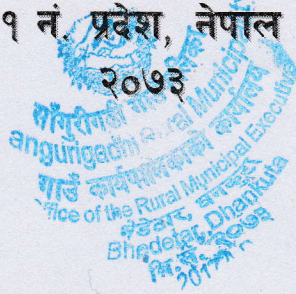 १ नं. प्रदेश, नेपाल
२०७३
साँगुरीगढी
angurigadhi Rural Municipal
गाउँ कार्यपालिकाको कार्यालय
ffice of the Rural Municipal Executive
भेडेटार, धनकुटा
Bhedetar, Dhankuta
२०७३
2017